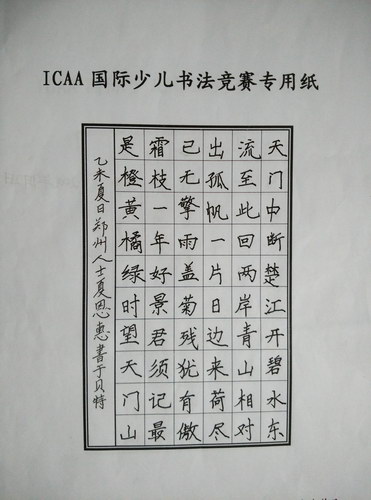 ICAA 国际少儿书法竞赛专用纸
天门中断楚江开碧水东
流至此回两岸青山相对
出孤帆一片日边来荷尽
已无擎雨盖菊残犹有傲
霜枝一年好景君须记最
是橙黄橘绿时望天门山
乙未夏日郑州人士夏恩惠書于贝特